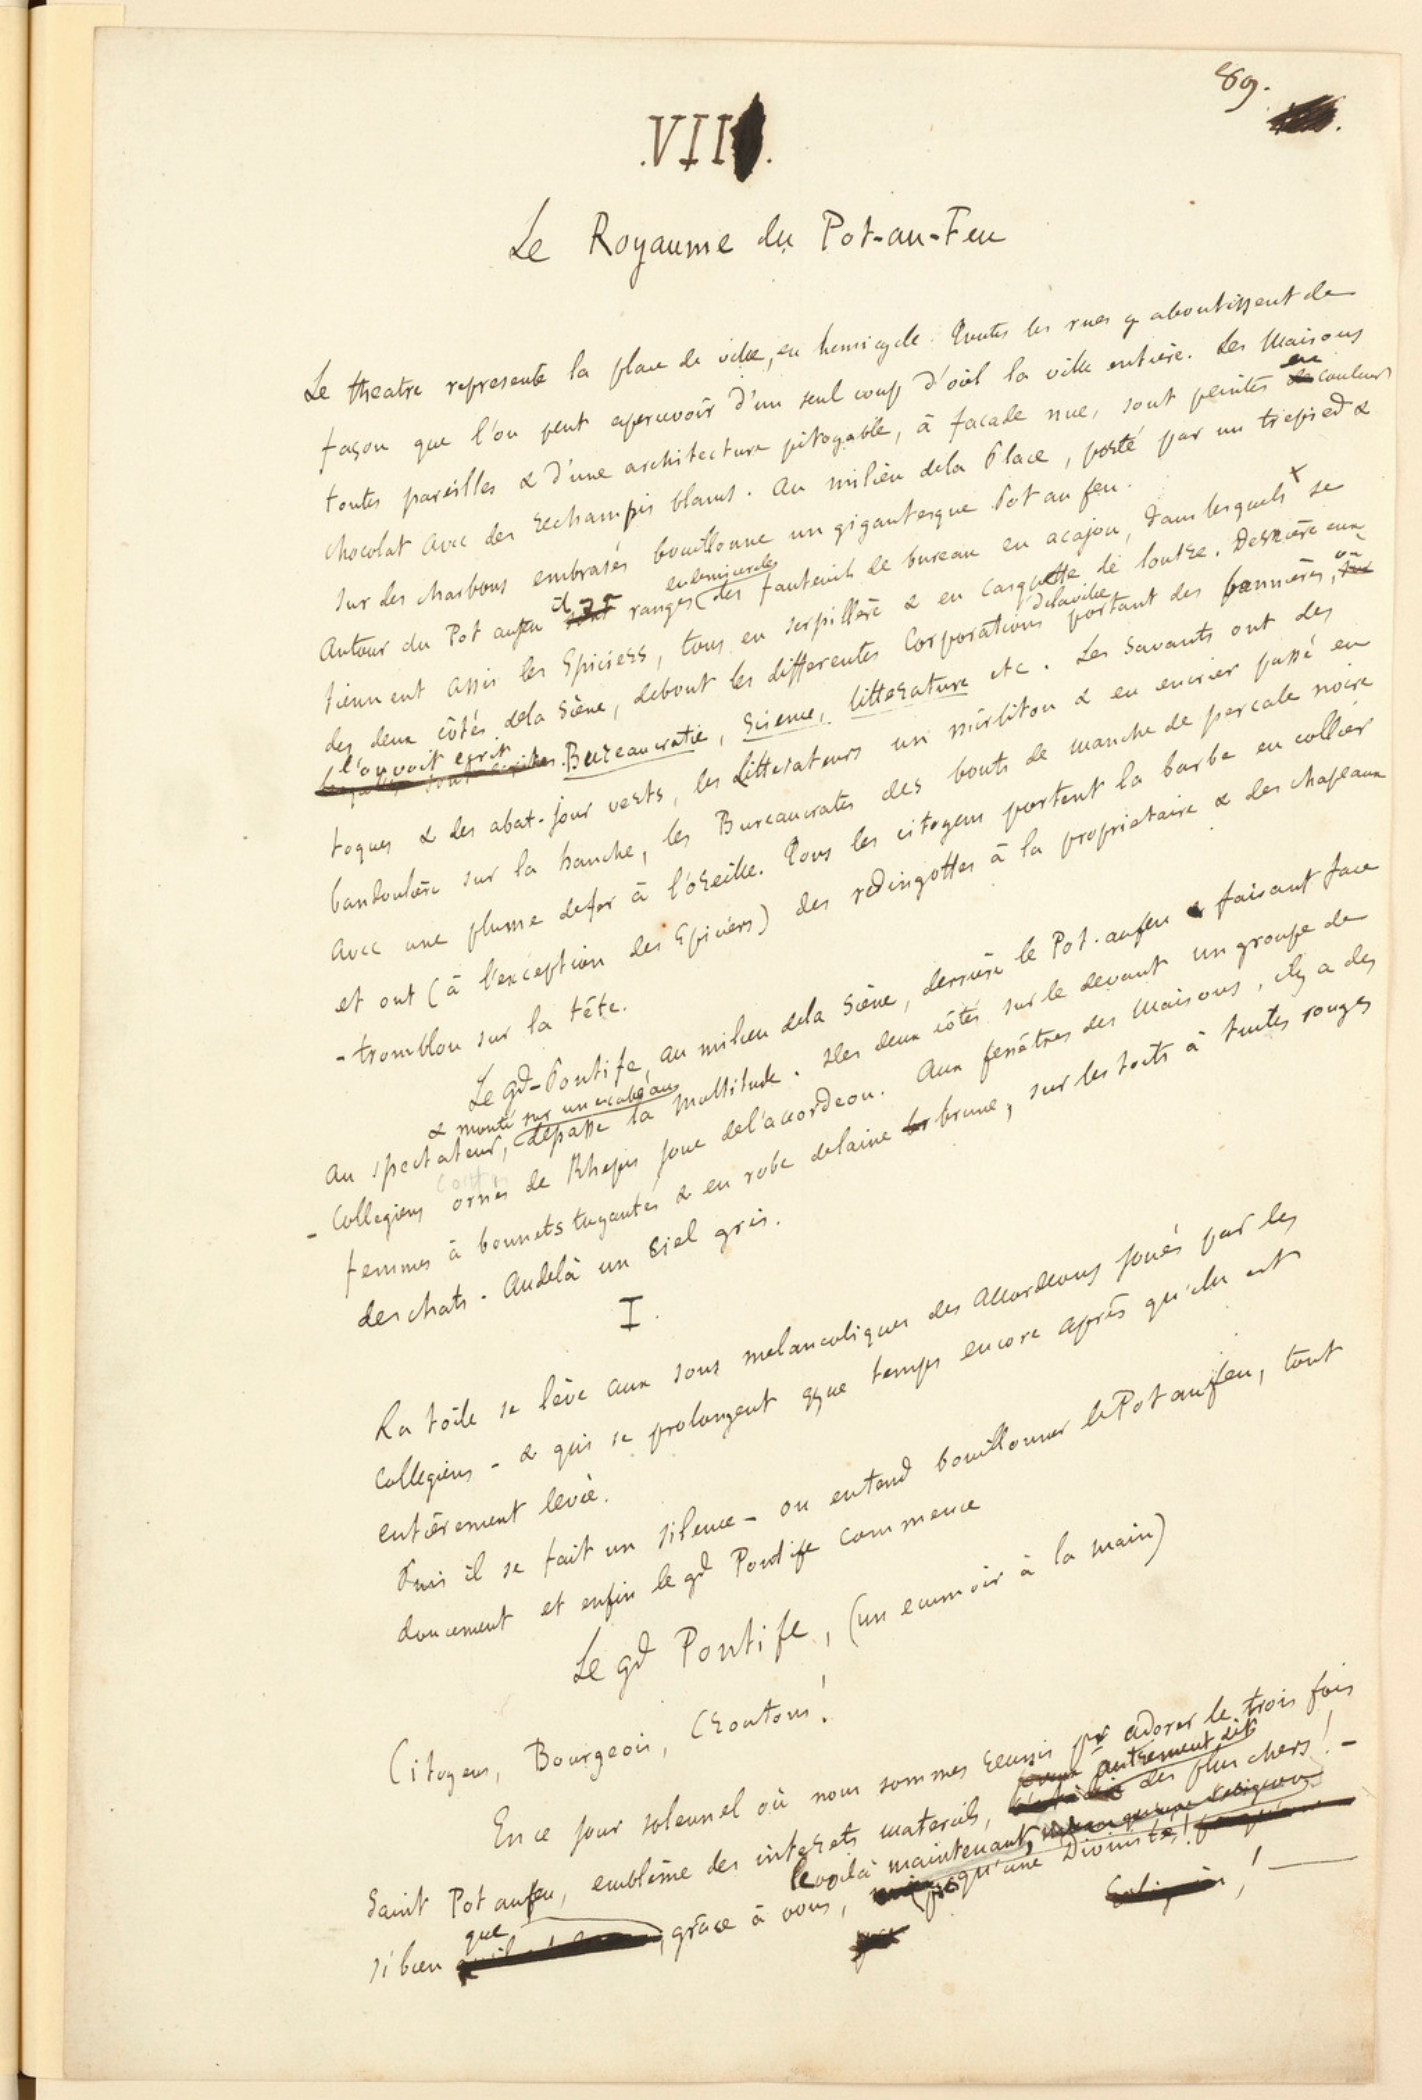 89.
.VII.
Le Royaume du Pot-au-Feu
Le theatre represente la place de ville, en hemicycle. Toutes les rues y aboutissent de
façon que l'on peut apercevoir d'un seul coup d'œil la ville entière. Les Maisons
toutes pareilles & d'une architecture pitoyable, à facade nue, sont peintes en couleur
chocolat avec des rechampis blancs. Au milieu dela Place, porté par un trepied &
sur des charbons embrasés bouillonne un gigantesque Pot au feu.
Autour du Pot aufeu il y a ranges en demi cercle des fauteuils de bureau en acajou, dans lesquels se
tiennent assis les Epiciers, tous en serpillère & en casquette de loutre. Derrière eux
des deux côtés dela Scène, debout les differentes Corporations dela ville portant des bannières, où
l'on voit ecrit Bureaucratie, Science, litterature etc. Les Savants ont des
toques & des abat-jour verts, les Litterateurs un mirliton & en encrier passé en
bandoulière sur la hanche, les Bureaucrates des bouts de manche de percale noire
avec une plume defer à l'oreille. Tous les citoyens portent la barbe en collier
et ont (à l'exception des Epiciers) des redingottes à la proprietaire & des chapeaux
- tromblon sur la tête.
Le gd-Pontife, au milieu dela Scène, derrière le Pot-aufeu & faisant face
& monté sur un escabeau
au spectateur, dépasse la Multitude. Des deux côtés sur le devant un groupe de
- Collegiens ornés de Kheps joue del'accordeon. Aux fenêtres des Maisons, il y a des
femmes à bonnets tuyautés & en robe delaine brune, sur les toits à tuiles rouges
des chats. Audelà un Ciel gris.
I.
La toile se lève aux sons melancoliques des Accordeons joués par les
Collegiens - & qui se prolongent qque temps encore après qu'elle est
entièrement levée.
Puis il se fait un silence - on entend bouillonner le Pot aufeu, tout
doucement et enfin le gd Pontife commence
Le gd Pontife, (un ecumoir à la main)
Citoyens, Bourgeois, Croutons!
En ce jour solennel où nous sommes reunis pr adorer le trois fois
Saint Pot aufeu, emblême des interets materiels, autrement dit des plus chers! -
si bien que, grâce à vous, le voilà maintenant, presqu'une Divinité!